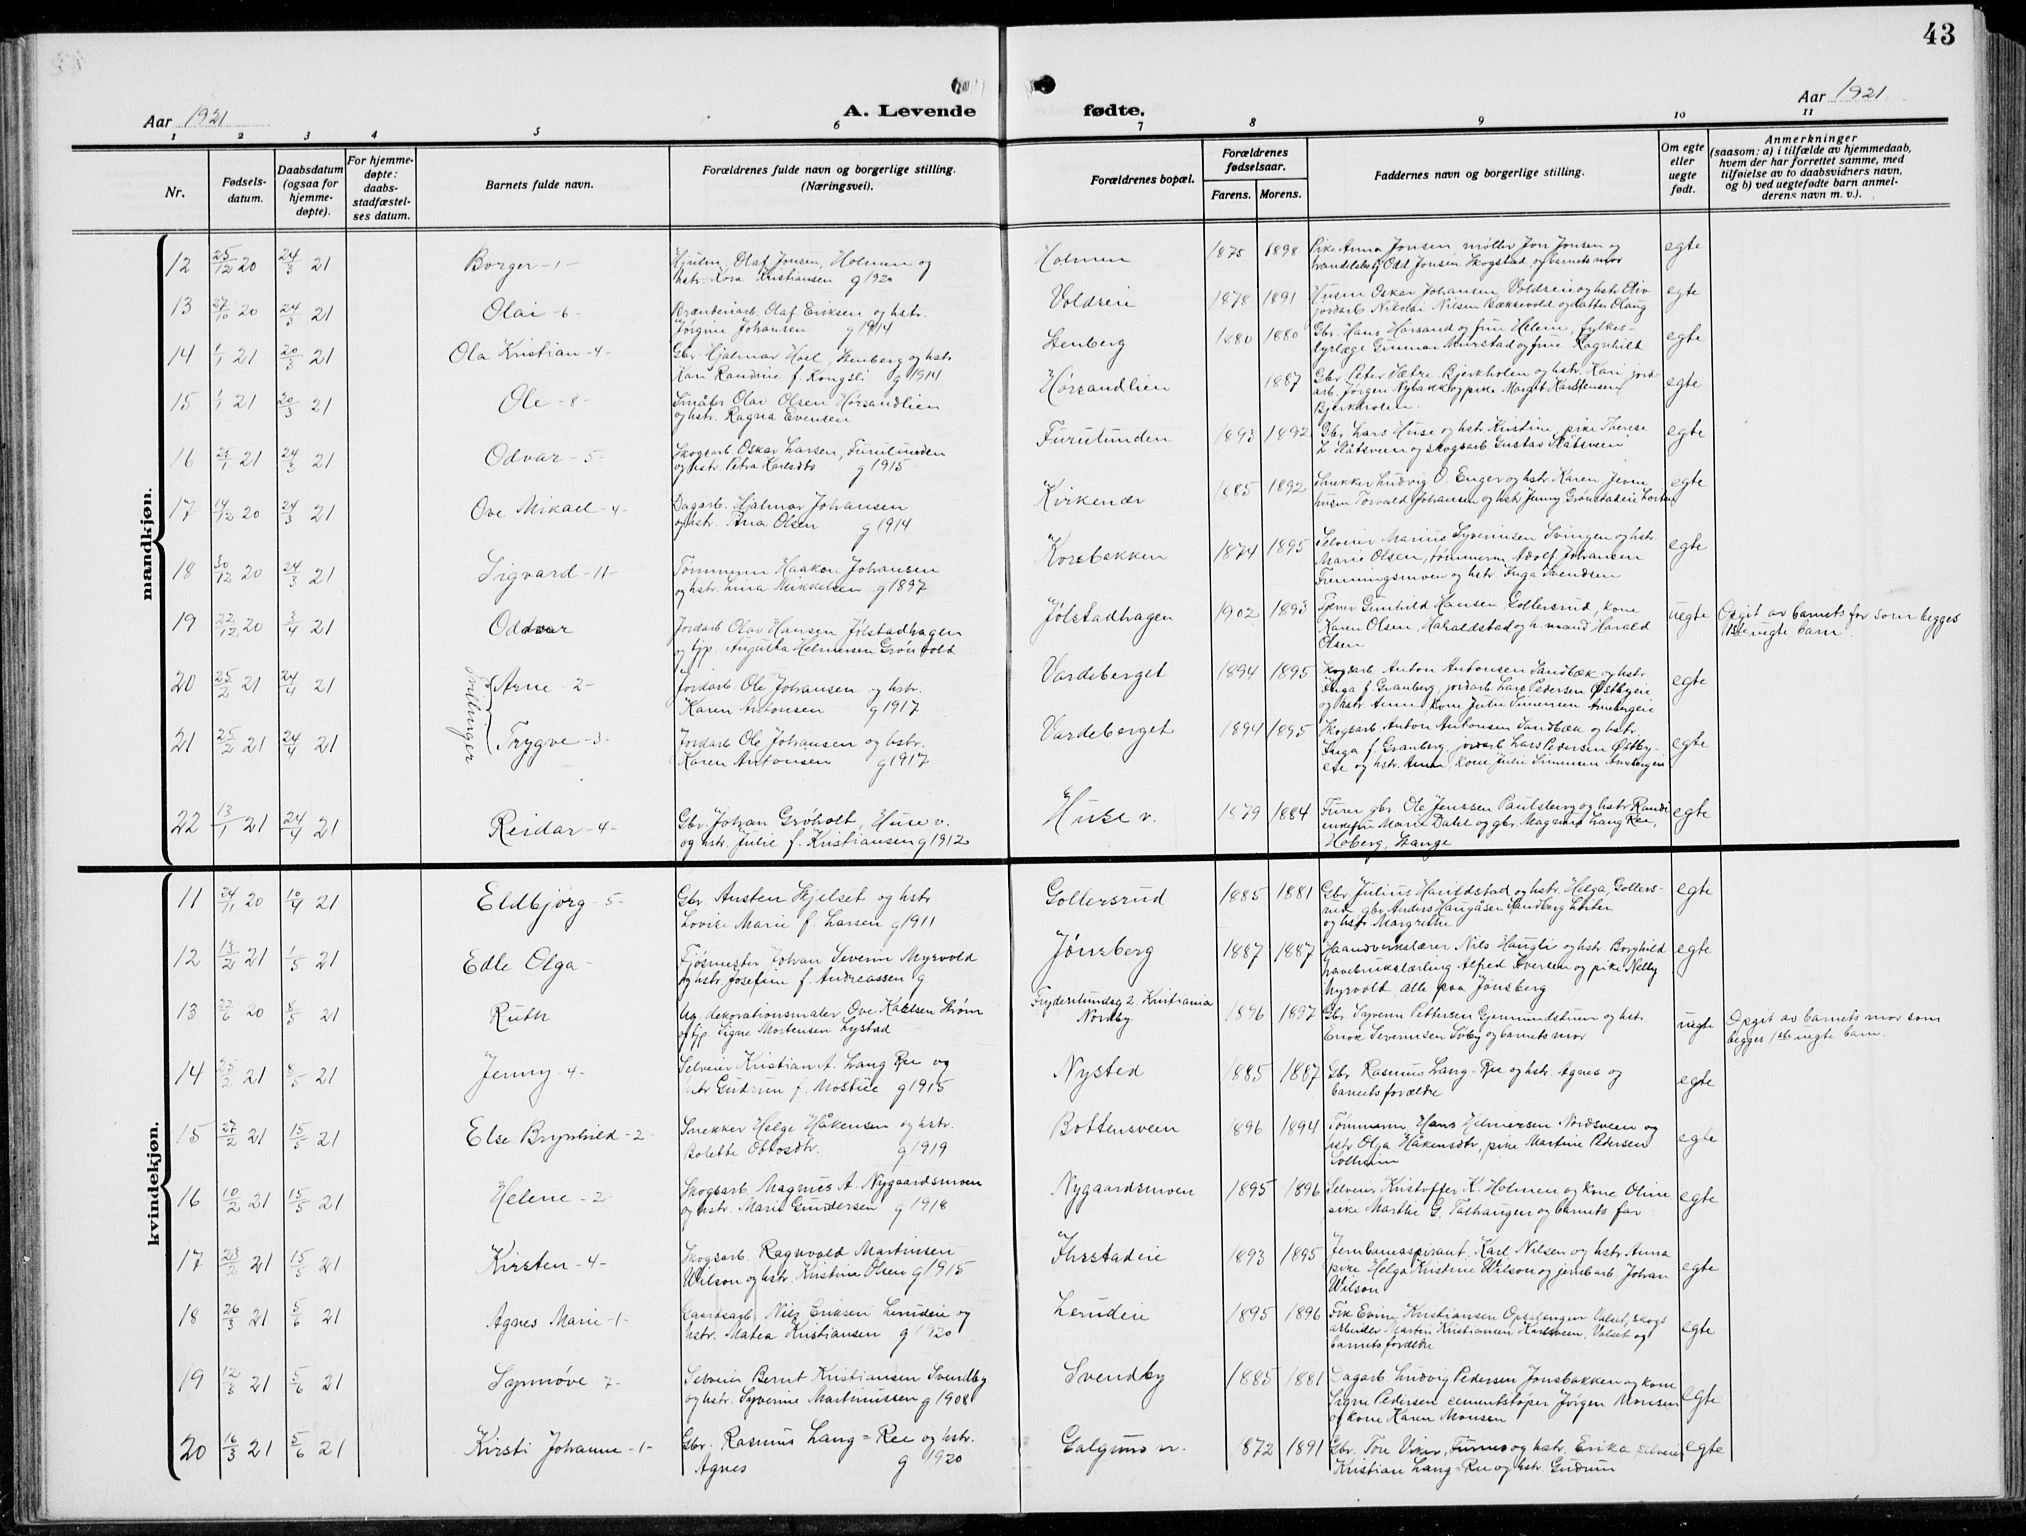 43
Aar 1921
A. Levende fødte.
Aar 1921
1 2 3 4 5 6 7 8 9 10 11
Nr.
Fødsels-
datum.
Daabsdatum
(ogsaa for
hjemme-
døpte).
For hjemme-
døpte:
daabs-
stadfæstel-
ses datum.
Barnets fulde navn.
Forældrenes fulde navn og borgerlige stilling.
(Næringsvei).
Forældrenes bopæl.
Forældrenes
fødselsaar.
Farens. Morens.
Faddernes navn og borgerlige stilling.
Om egte
eller
uegte
født.
Anmerkninger
(saasom: a) i tilfælde av hjemmedaab,
hvem der har forrettet samme, med
tilføielse av to daabsvidners navn,
og b) ved uegtefødte barn anmel-
derens navn m. v.).
mandkjøn.
12 25/12 20 24/3 21 Borger -1- Hjulm. Olaf Jonsen, Holmen og
hstr. Kora Kristiansen g 1920
Holmen 1875 1898 Pike Anna Jonsen møller Jon Jonsen og
handelsbetj Odd Jonsen Skogstad og barnets mor
egte
13 27/10 20 24/3 21 Olai -6- Brænderiarb. Olaf Eriksen og hstr.
Jørgine Johansen g 1914
Voldseie 1878 1891 Husm Oskar Johansen Voldseie og hstr Oliv
jordarb Nikolai Nilsen Bæksevold og datter Olaug
egte
14 1/1 21 20/3 21 Ola Kristian -4- Gbr. Hjalmar Hoel, Stenberg og hstr
Kari Randine f. Kongsli g 1914
Stenberg 1880 1880 Gbr. Hans Hørsand og frue Helene, fylkes-
dyrlæge Gunnar Murstad og frue Ragnhild
egte
15 1/1 21 20/3 21 Ole -8- Småbr Olav Olsen Hørsandlien
og hstr. Ragna Evensen
Hørsandlien 1887 Gbr Peter Sætre Bjerkholen og hstr. Kari jord-
arb. Jørgen Nybakk og pike Margit Karstensen
Bjerkholen.
egte
16 25/1 21 24/3 21 Odvar -5- Skogsarb Oskar Larsen, Furulunden
og hstr Petra Karlsdtr g 1915
Furulunden 1893 1892 Gbr Lars Huse og hstr. Kristine, pike Therese
L. Slåtsveen og skogsarb Gustav Slåtsveen
egte
17 14/12 20 24/3 21 Ove Mikael -4- Dagarb. Hjalmar Johansen
og hstr. Tina Olsen g 1914
Kirkenær 1885 1892 Snekker Ludvig O. Enger og hstr. Karen Jevne
husm Torvald Johansen og hstr Jenny Grønstadeie Løten
egte
18 30/12 20 24/3 21 Sigvard -11- Tømmerm Haakon Johansen
og hstr. Lina Mikkelsen g 1897
Korsbakken 1874 1895 Selveier Marius Syversen Svingen og hstr.
Marie Olsen, tømmerm Adolf Johansen
Fremmingsmoen og hstr. Inga Svendsen
egte
19 22/12 20 3/4 21 Oddvar Jordarb. Olav Hansen Jølstadhagen
og tjp. Augusta Helmersen Grønvold
Jølstadhagen 1902 1893 Tjener Gunhild Hansen Gollersrud, kone
Karen Olsen, Haraldstad og h. mand Harald
Olsen
uegte Opgit av barnets far som begges
1ste uegte barn.
Tvillinger
20 25/2 21 24/4 21 Arne -2- Jordarb. Ole Johansen og hstr.
Karen Antonsen g 1917
Vardeberget 1894 1895 Skogsarb Anton Antonsen Sandbæk og hstr.
Inga f. Granberg, jordarb Lars Pedersen Østbyeie
og hstr Anne, kone Julie Simensen Arnebergeie
egte
21 25/2 21 24/4 21 Trygve -3- Jordarb Ole Johansen og hstr.
Karen Antonsen g 1917
Vardeberget 1894 1895 Skogsarb. Anton Antonsen Sandbæk og hstr.
Inga f. Granberg, jordarb Lars Pedersen Østby-
eie og hstr. Anne, kone Julie Simensen Arnebergeie
egte
22 13/1 21 24/4 21 Reidar -4- Gbr. Johan Grøholt, Huse v.
og hstr. Julie f. Kristiansen g 1912
Huse v. 1879 1884 Furu gbr. Ole Jenssen Paulsberg og hstr Randi
enkefru Marie Dahl og gbr. Magnus Lang Ree,
Hoberg, Stange
egte
kvindekjøn.
11 24/11 20 10/4 21 Eldbjørg -5- Gbr. Austen Skjelset og hstr
Lovise Marie f. Larsen g 1911
Gollersrud 1885 1881 Gbr Julius Harildstad og hstr. Helga, Gollers-
rud, gbr Anders Haugåsen Sandberg Løiten
og hstr Margrethe
egte
12 13/2 21 1/5 21 Edle Olga - Fjøsmester Johan Severin Myrvold
og hstr Josefine f. Andreassen g
Jønsberg 1887 1887 Haandverkslærer Nils Haugli og hstr. Borghild
havebrukslærling Alfred Iversen og pike Nelly
Myrvold, alle paa Jønsberg
egte
13 22/6 20 8/5 21 Ruth Ug. dekorationsmaler Ove Karlsen Strøm
og tjp Signe Mortensen Lystad
Frydenlundsg 2. Kristiania
Nordby 1896 1897 Gbr. Syvern Pettersen Gjermundstuen og hstr.
Enok Severinsen Såby og barnets mor
uegte Opgit av barnets mor som
begges 1ste uegte barn.
14 25/2 21 8/5 21 Jenny -4- Selveier Kristian A. Lang Ree og
hstr Gudrun f. Mostue g 1915
Nysted 1885 1887 Gbr Rasmus Lang-Ree og hstr. Agnes og
barnets forældre
egte
15 27/2 21 15/5 21 Else Brynhild -2- Snekker Helge Håkensen og hstr.
Bolette Ottosdtr. g 1919
Bottensveen 1896 1894 Tømmerm. Hans Helmersen Nordsveen og
hstr Olga Håkensdtr, pike Martine Pedersen
Solheim
egte
16 10/2 21 15/5 21 Helene -2- Skogsarb. Magnus A. Nygaardsmoen
og hstr. Marie Gundersen g 1918
Nygaardsmoen 1895 1896 Selveier Kristoffer K. Holmen og kone Oline
pike Marthe G. Tolhaugen og barnets far
egte
17 23/2 21 15/5 21 Kirsten -4- Skogsarb. Ragnvald Martinsen
Wilson og hstr. Kristine Olsen g 1915
Ihrstadeie 1893 1895 Jernbaneaspirant Karl Nilsen og hstr Anna
pike Helga Kristine Wilson og jernbarb Johan
Wilson
egte
18 26/3 21 5/6 21 Agnes Marie -1- Gaardsarb. Nils Eriksen Lerudeie og
hstr. Matea Kristiansen g 1920
Lerudeie 1895 1896 Frk Evine Kristiansen Opsalenger Valset, skogs
arbeider Martin Kristiansen Karlsveen, Valset og
barnets forældre
egte
19 12/3 21 5/6 21 Synnøve 7- Selveier Bernt Kristiansen Svendby
og hstr. Syverine Martinussen g 1908
Svendby 1885 1881 Dagarb Ludvig Pedersen Jønsbakken og kone
Signe Pedersen cementstøper Jørgen Monsen
og kone Karen Monsen
egte
20 16/3 21 5/6 21 Kirsti Johanne -1- Gbr. Rasmus Lang=Ree og hstr.
Agnes g 1920
Galgum n. 1872 1891 Gbr. Tore Viker, Furnes og hstr. Erika selveier
Kristian Lang-Ree og hstr Gudrun
egte